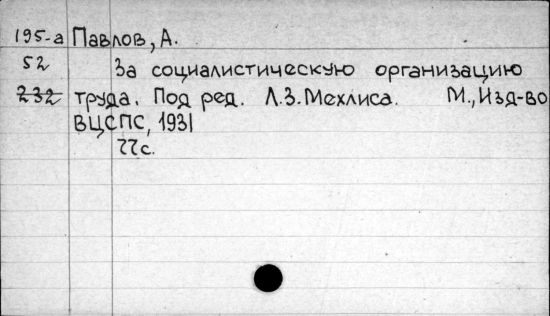 195-а Павлов, А.
52 За социалистическую организацию
232 труда. Под ред. Л.З.Мехлиса. М., Изд-во
ВЦСПС, 1931
77с.